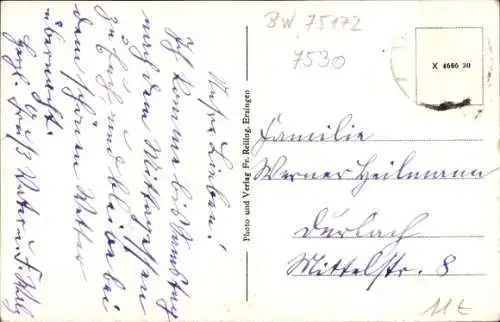 Meine Lieben!
Ich komme bis Samstag
nach dem Mittagessen
zu Euch und bleibe bei
dem schönen Wetter
über Nacht.
Herzl. Grüße Vater u.
Photo und Verlag Fr. Reiling, Ersingen
BW 75172
7530
X 4686 30
Familie
Werner Heilmann
Durlach
Mittelstr. 8
11E